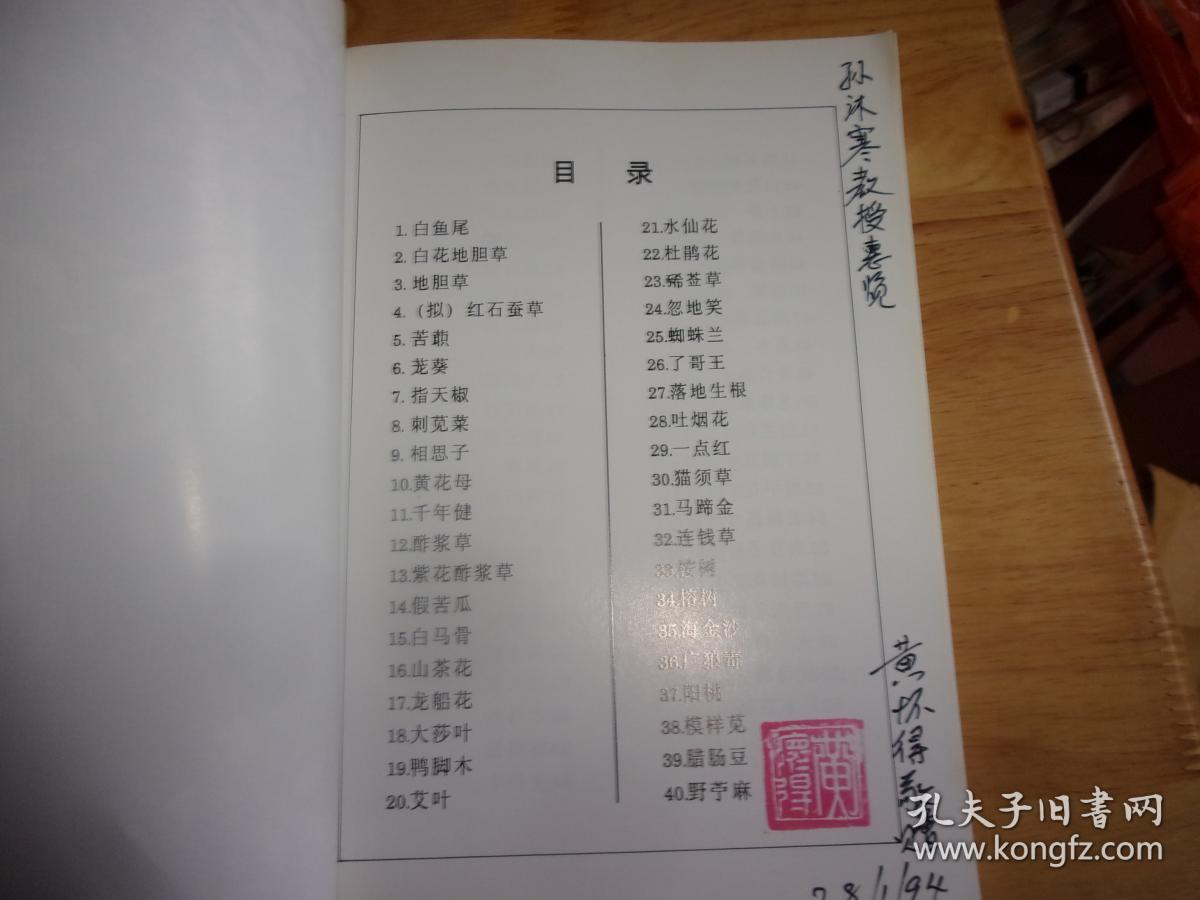 目 录
1. 白鱼尾
2. 白花地胆草
3. 地胆草
4.（拟）红石蚕草
5. 苦蘵
6. 茏葵
7. 指天椒
8. 刺苋菜
9. 相思子
10.黄花母
11.千年健
12.酢浆草
13.紫花酢浆草
14.假苦瓜
15.白马骨
16.山茶花
17.龙船花
18.大莎叶
19.鸭脚木
20.艾叶
21.水仙花
22.杜鹃花
23.豨莶草
24.忽地笑
25.蜘蛛兰
26.了哥王
27.落地生根
28.吐烟花
29.一点红
30.猫须草
31.马蹄金
32.连钱草
33.桉树
34.榕树
35.海金沙
36.广狼毒
37.阳桃
38.模样苋
39.腊肠豆
40.野苎麻
孙沐寒教授惠览
黄怀得敬赠
28/1/94
黄怀得
孔夫子旧书网
www.kongfz.com